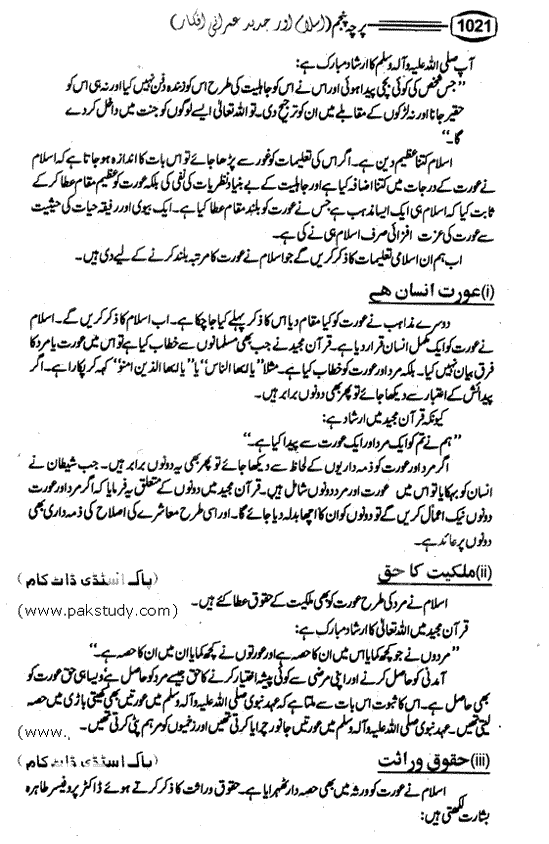 1021 پرچہ پنجم (اسلام اور جدید عمرانی افکار)
آپ صلی اللہ علیہ وآلہ وسلم کا ارشاد مبارک ہے:
”جس شخص کی کوئی بچی پیدا ہوئی اور اس نے اس کو جاہلیت کی طرح اس کو زندہ دفن نہیں کیا اور نہ ہی اس کو
حقیر جانا اور نہ لڑکوں کے مقابلے میں ان کو ترجیح دی۔ تو اللہ تعالیٰ ایسے لوگوں کو جنت میں داخل کر دے
گا۔“
اسلام کتنا عظیم دین ہے۔ اگر اس کی تعلیمات کو غور سے پڑھا جائے تو اس بات کا اندازہ ہو جاتا ہے کہ اسلام
نے عورت کے درجات میں کتنا اضافہ کیا ہے اور جاہلیت کے بے بنیاد نظریات کی نفی کی بلکہ عورت کو عظیم مقام عطا کر کے
ثابت کیا کہ اسلام ہی ایک ایسا مذہب ہے جس نے عورت کو بلند مقام عطا کیا ہے۔ ایک بیوی اور رفیقہ حیات کی حیثیت
سے عورت کی عزت افزائی صرف اسلام ہی نے کی ہے۔
اب ہم ان اسلامی تعلیمات کا ذکر کریں گے جو اسلام نے عورت کا مرتبہ بلند کرنے کے لیے دی ہیں۔
(i) عورت انسان ہے
دوسرے مذاہب نے عورت کو کیا مقام دیا اس کا ذکر پہلے کیا جا چکا ہے۔ اب اسلام کا ذکر کریں گے۔ اسلام
نے عورت کو ایک مکمل انسان قرار دیا ہے۔ قرآن مجید نے جب بھی مسلمانوں سے خطاب کیا ہے تو اس میں عورت یا مرد کا
فرق بیان نہیں کیا۔ بلکہ مرد اور عورت کو خطاب کیا ہے۔ مثلاً ”یا ایھا الناس“ یا ”یا ایھا الذین امنو“ کہہ کر پکارا ہے۔ اگر
پیدائش کے اعتبار سے دیکھا جائے تو پھر بھی دونوں برابر ہیں۔
کیونکہ قرآن مجید میں ارشاد ہے:
”ہم نے تم کو ایک مرد اور ایک عورت سے پیدا کیا ہے۔“
اگر مرد اور عورت کو ذمہ داریوں کے لحاظ سے دیکھا جائے تو پھر بھی یہ دونوں برابر ہیں۔ جب شیطان نے
انسان کو بہکایا تو اس میں عورت اور مرد دونوں شامل ہیں۔ قرآن مجید میں دونوں کے متعلق یہ فرمایا کہ اگر مرد اور عورت
دونوں نیک اعمال کریں گے تو دونوں کو ان کا اچھا بدلہ دیا جائے گا۔ اور اسی طرح معاشرے کی اصلاح کی ذمہ داری بھی
دونوں پر عائد ہے۔
(ii) ملکیت کا حق (پاک اسٹڈی ڈاٹ کام)
اسلام نے مرد کی طرح عورت کو بھی ملکیت کے حقوق عطا کئے ہیں۔ (www.pakstudy.com)
قرآن مجید میں اللہ تعالیٰ کا ارشاد مبارک ہے:
”مردوں نے جو کچھ کمایا اس میں ان کا حصہ ہے اور عورتوں نے کچھ کمایا ان میں ان کا حصہ ہے۔“
آمدنی کو حاصل کرنے اور اپنی مرضی سے کوئی پیشہ اختیار کرنے کا حق جیسے مرد کو حاصل ہے ویسا ہی حق عورت کو
بھی حاصل ہے۔ اس کا ثبوت اس بات سے ملتا ہے کہ عہد نبوی صلی اللہ علیہ وآلہ وسلم میں عورتیں بھی کھیتی باڑی میں حصہ
لیتی تھیں۔ عہد نبوی صلی اللہ علیہ وآلہ وسلم میں عورتیں جانور چرایا کرتی تھیں اور زخمیوں کو مرہم پٹی کرتی تھیں۔ (www.
(iii) حقوق وراثت (پاک اسٹڈی ڈاٹ کام)
اسلام نے عورت کو ورثہ میں بھی حصہ دار ٹھہرایا ہے۔ حقوق وراثت کا ذکر کرتے ہوئے ڈاکٹر پروفیسر طاہرہ
بشارت لکھتی ہیں: